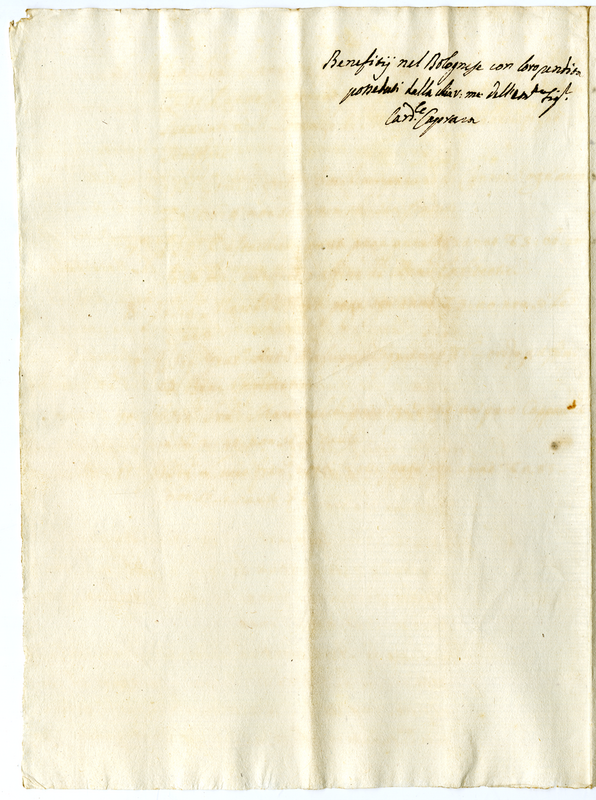 Benefitij nel Bolognese con loro rendite
posseduti dalla chiar: me: dell'em.º Sig.ʳ
Card.ˡᵉ Caprara